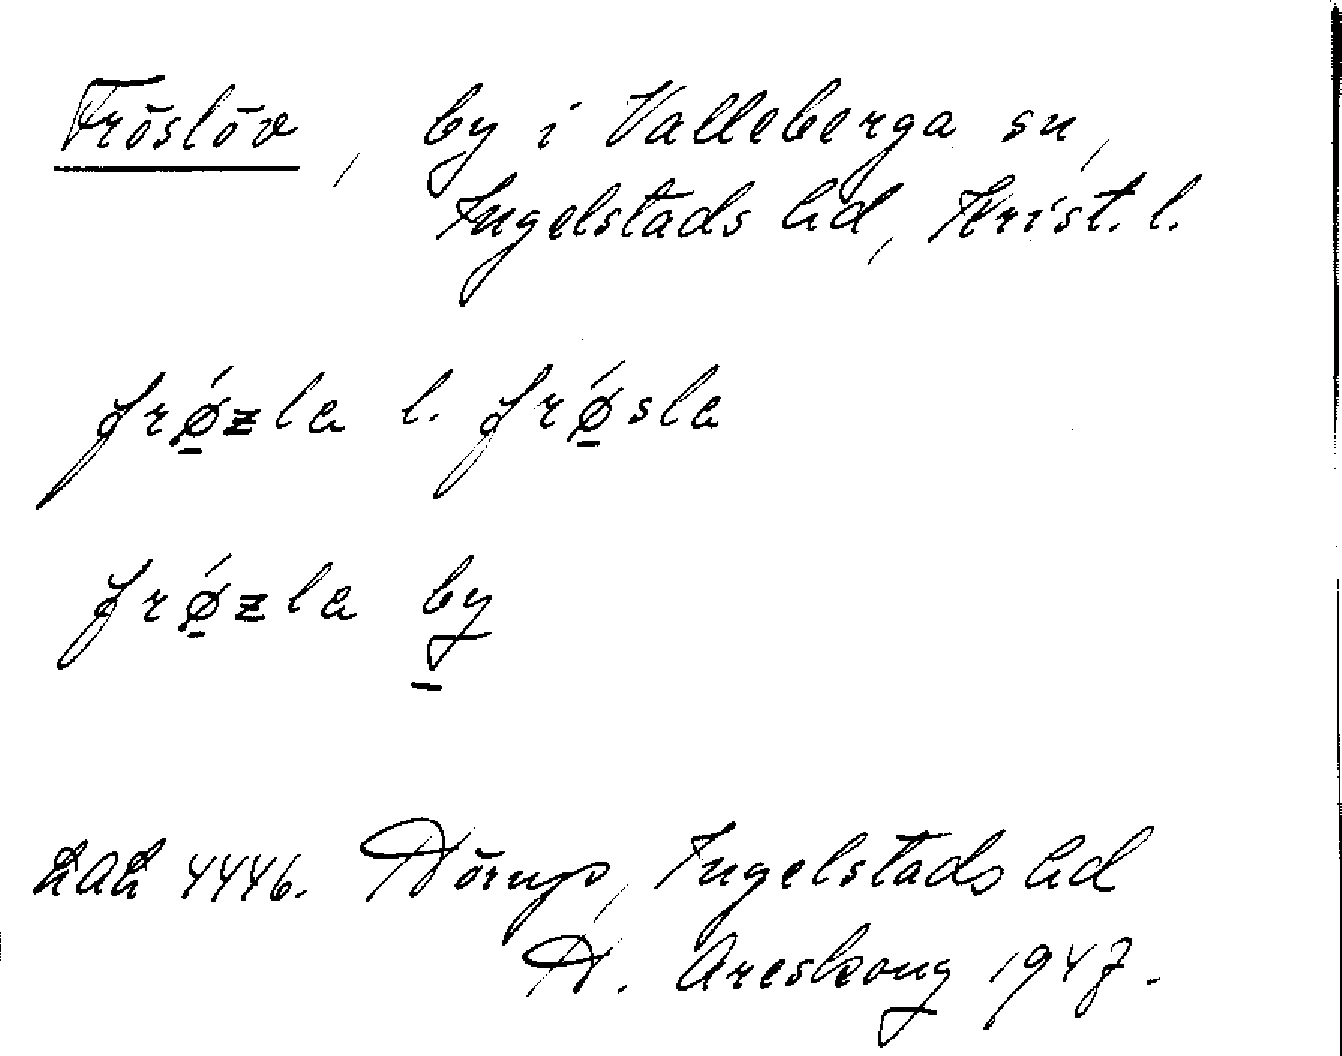 Fröslöv, by i Valleberga sn,
Ingelstads hd, Krist. l.
frǿ̱zla l. frǿ̱sla
frǿ̱zla by̱
LAL 4446. Hörup, Ingelstads hd
H. Areskoug 1947.